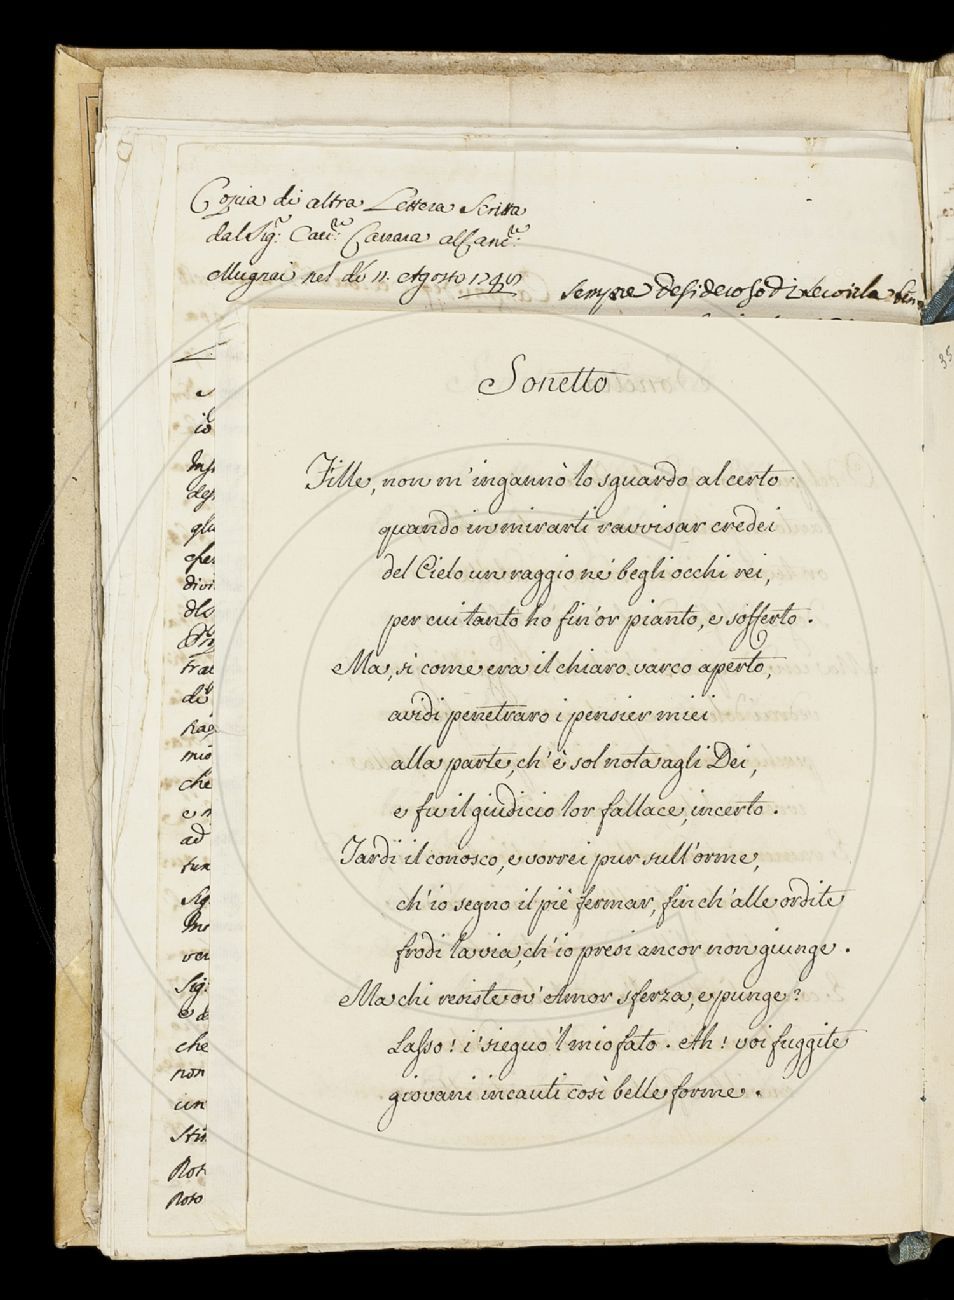 Copia di altra Lettera Scritta
dal Sig.r Cau.re Carrara al Canc.re
Mugnai nel dì 11. Agosto
sempre desideroso di
Sonetto
Fille, non m'ingannò lo sguardo al certo
quando in mirarti ravvisar credei
del Cielo un raggio ne' begli occhi rei,
per cui tanto ho fin'or pianto, e sofferto.
Ma, sì come era il chiaro varco aperto,
avidi penetraro i pensier miei
alla parte, ch'è sol nota agli Dei,
e fu il giudicio lor fallace, incerto.
Tardi il conosco, e vorrei pur sull'orme,
ch'io segno il piè fermar, finch'alle ordite
frodi la via, ch'io presi ancor non giunge.
Ma chi resiste ov'Amor sferza, e punge?
Lasso! i' sieguo 'l mio fato. Ah! voi fuggite
giovani incauti così belle forme.
io
glu
divi
di
mio
che
ad
Sig.
che
non
35